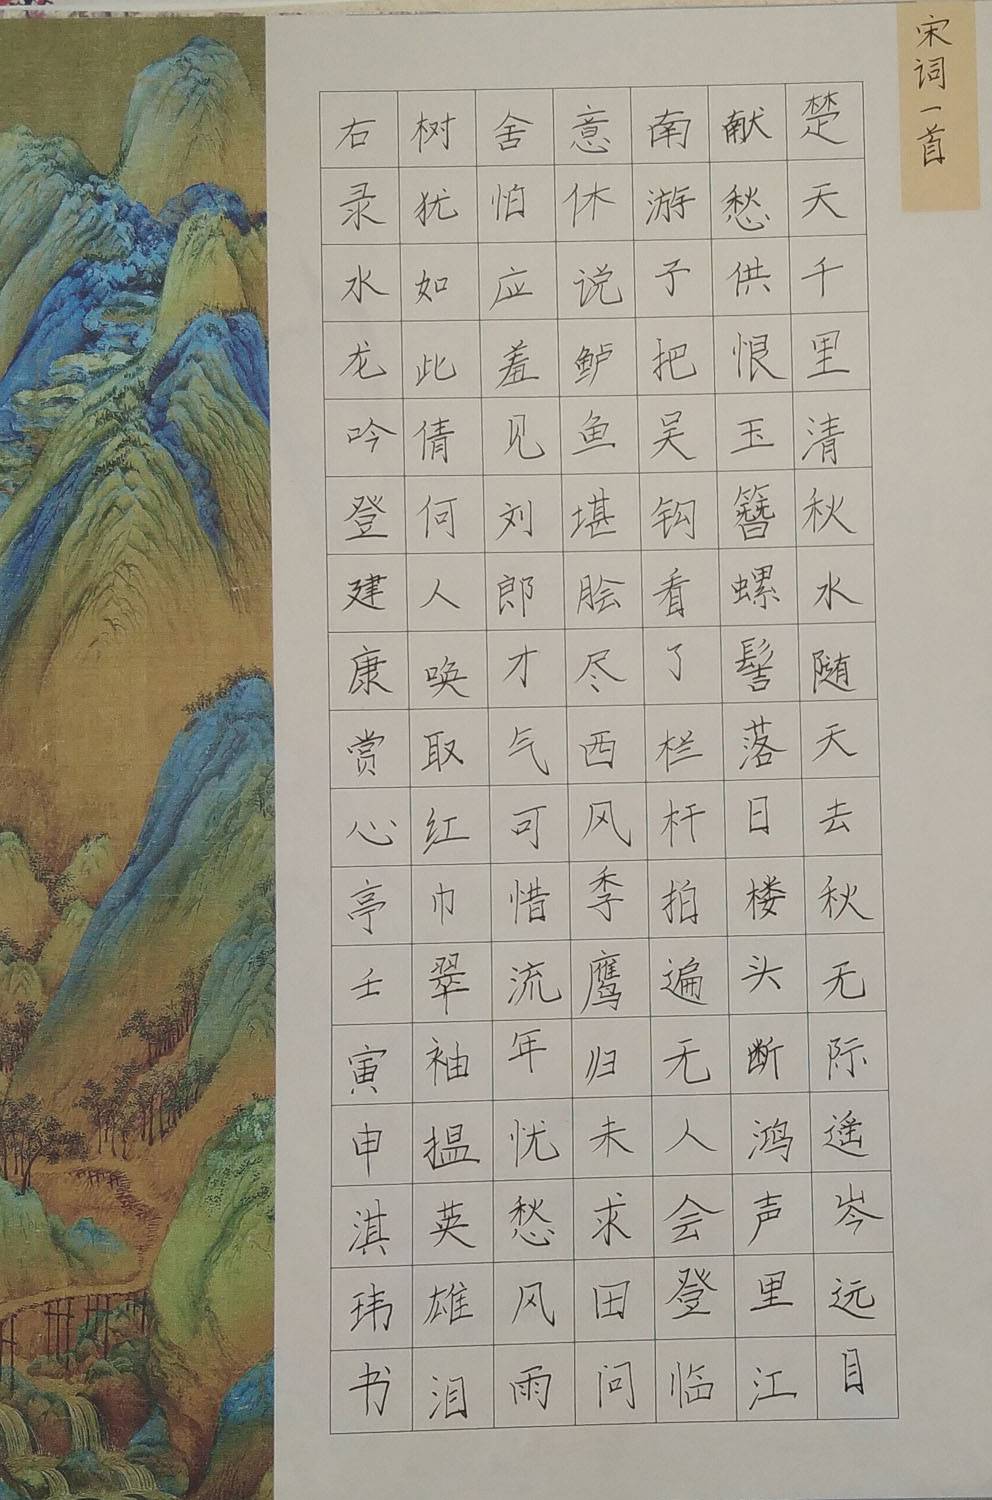 宋词一首
楚天千里清秋水随天去秋无际遥岑远目
献愁供恨玉簪螺髻落日楼头断鸿声里江
南游子把吴钩看了栏杆拍遍无人会登临
意休说鲈鱼堪脍尽西风季鹰归未求田问
舍怕应羞见刘郎才气可惜流年忧愁风雨
树犹如此倩何人唤取红巾翠袖揾英雄泪
右录水龙吟登建康赏心亭壬寅申淇玮书